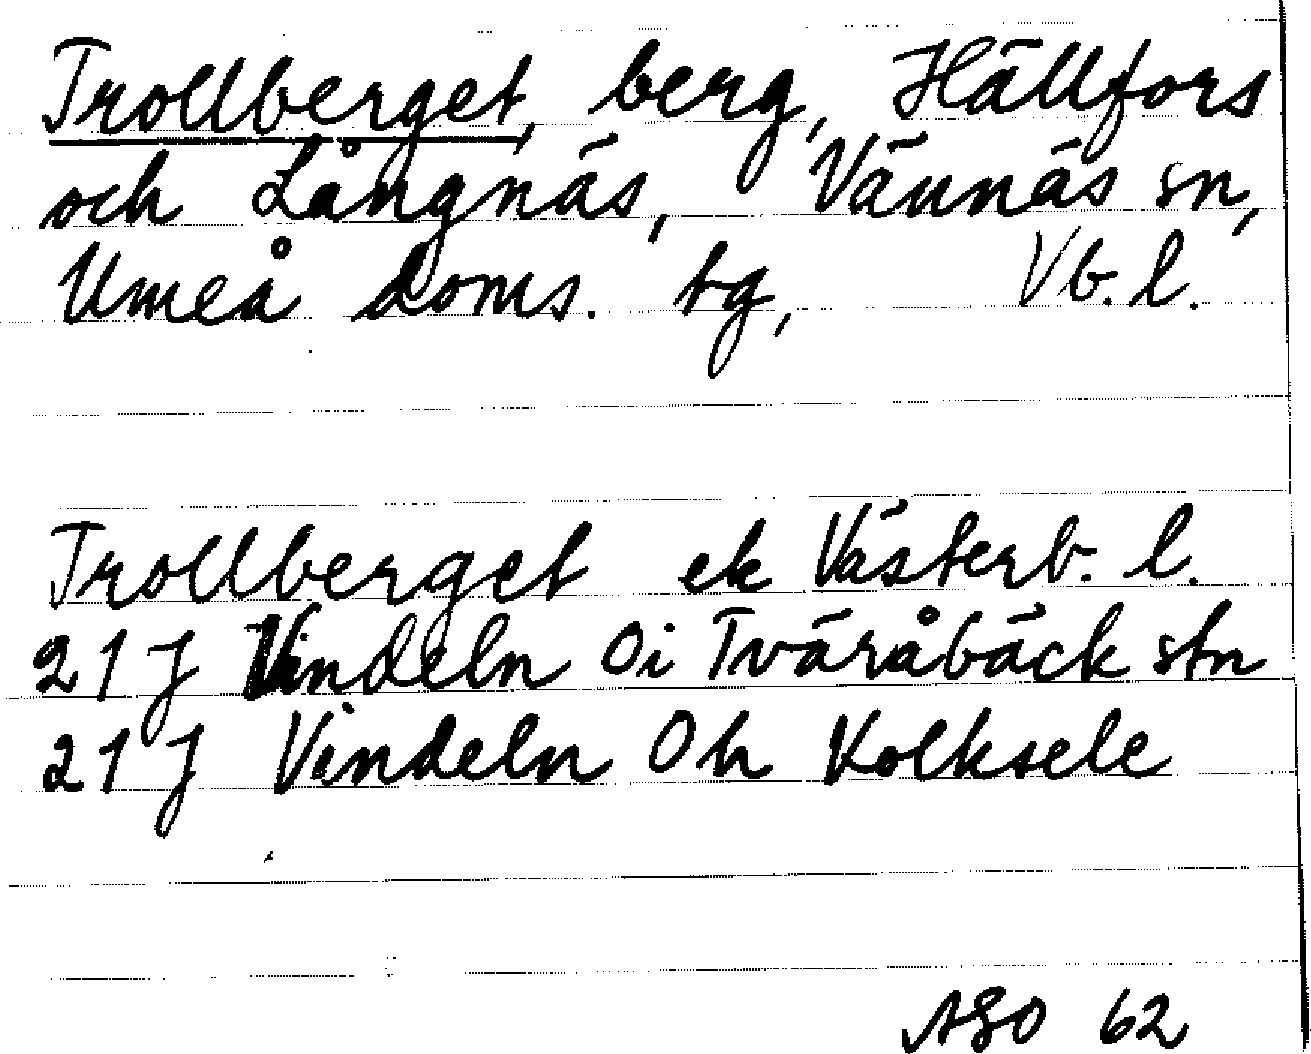 Trollberget, berg, Hällfors
och Långnäs, Vännäs sn,
Umeå doms. tg, Vb. l.
Trollberget ek Västerb. l.
21 J Vindeln Oi Tväråbäck stn
21 J Vindeln Oh Kolksele
ASO 62